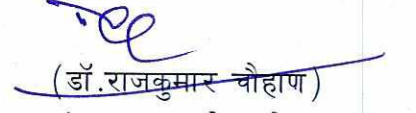 (डॉ.राजकुमार चौहाण)